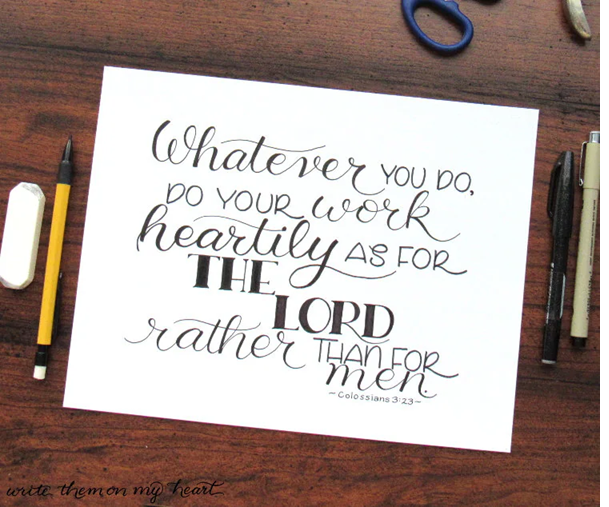 Whatever YOU DO,
DO YOUR work
heartily AS FOR
THE
LORD
rather THAN FOR
men.
-Colossians 3:23-
write them on my heart